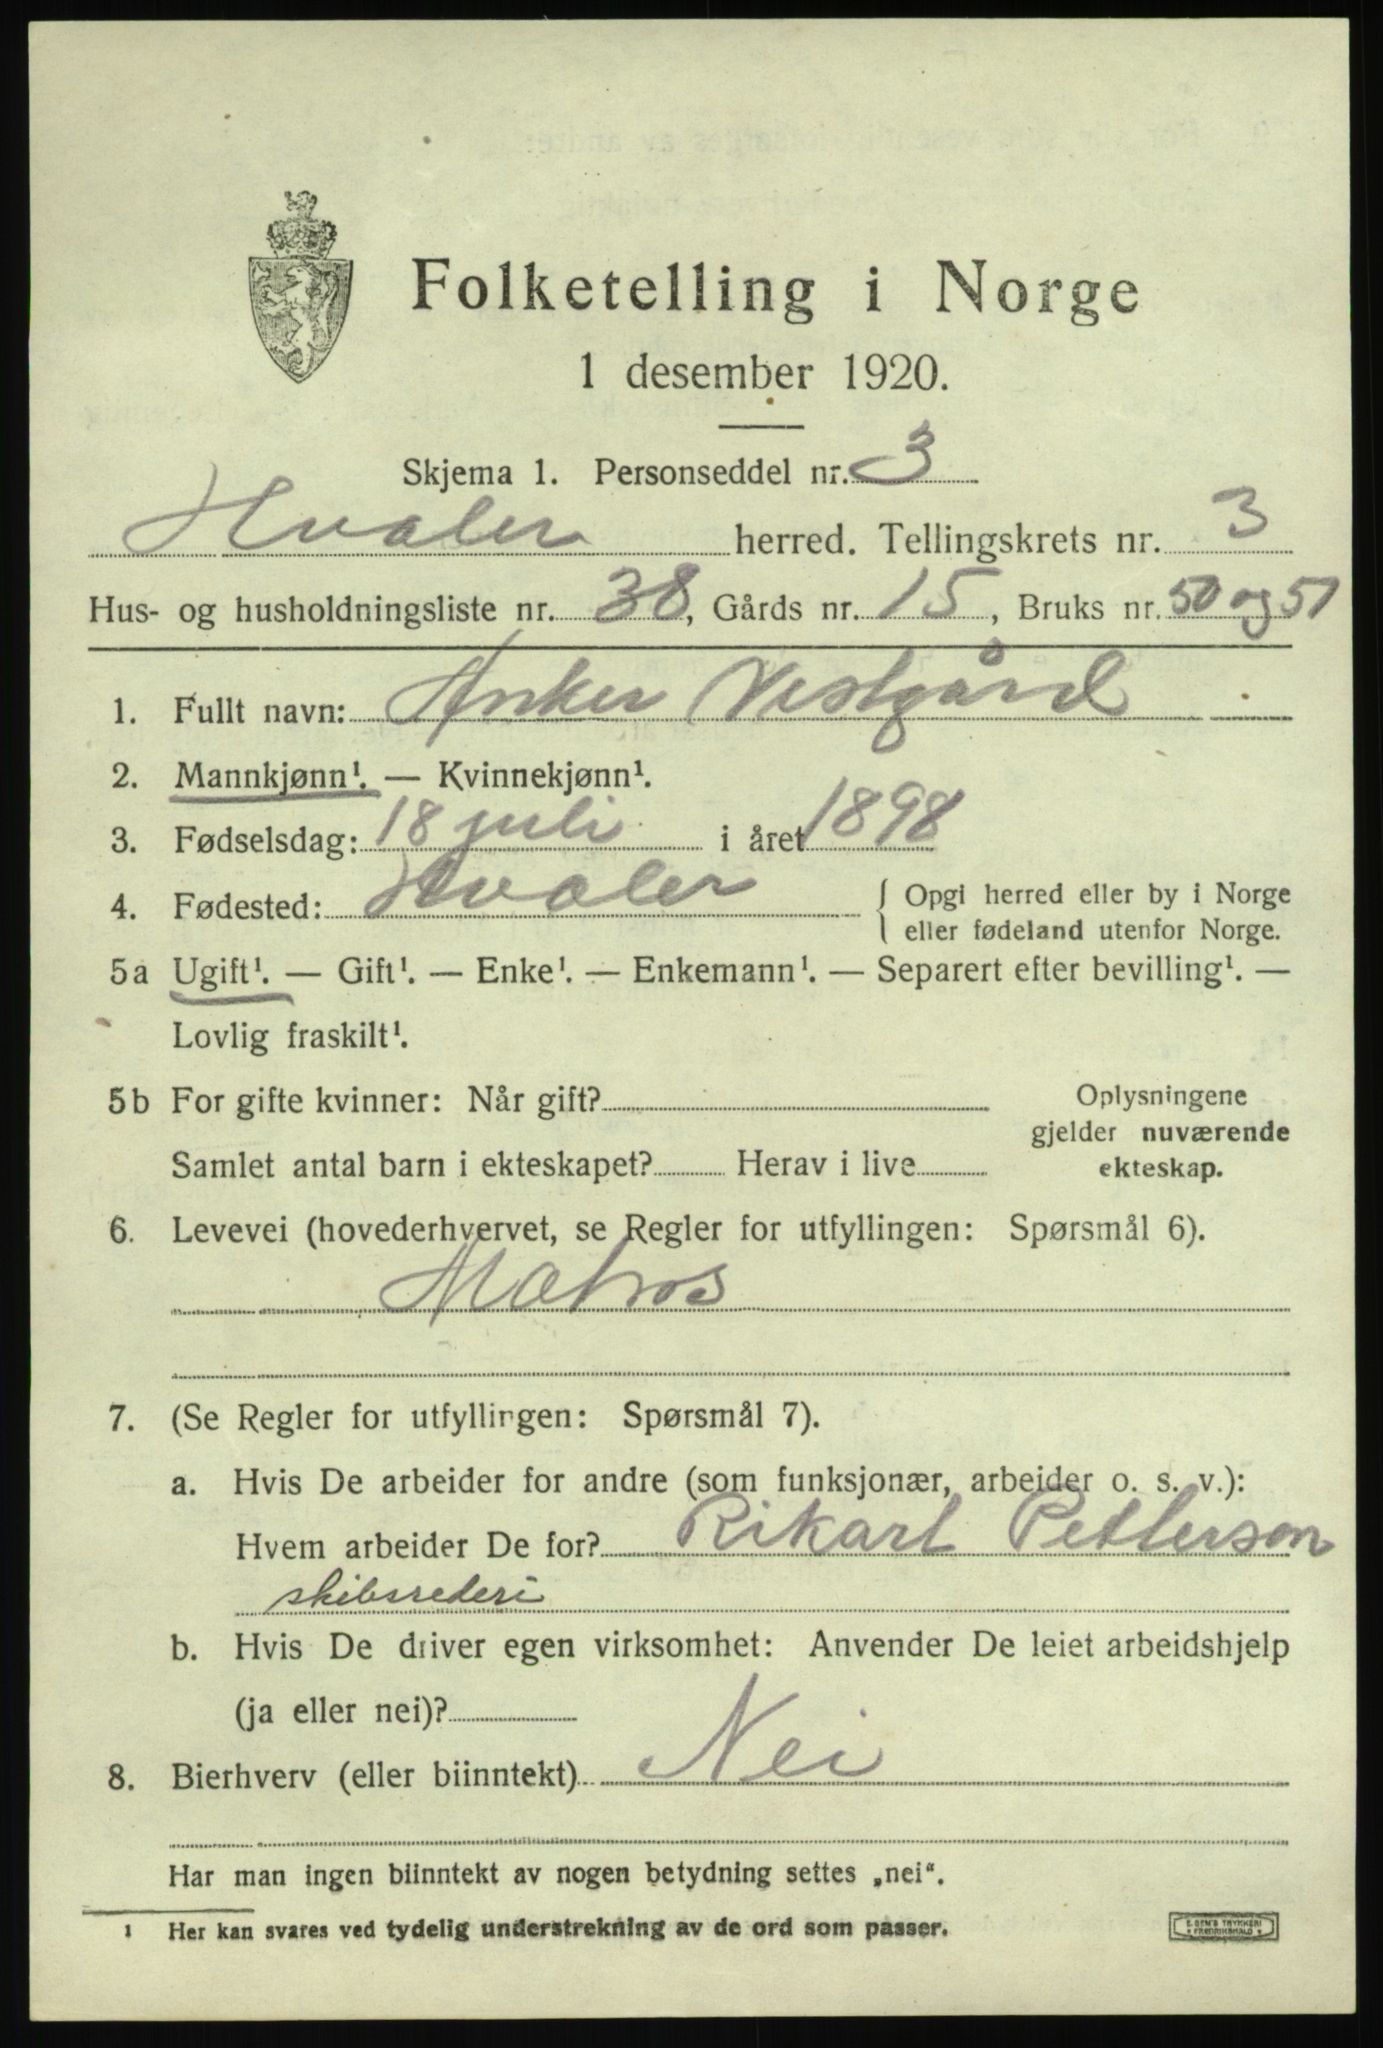 Folketelling i Norge
1 desember 1920.
Skjema 1. Personseddel nr. 3
Hvaler herred. Tellingskrets nr. 3
Hus- og husholdningsliste nr. 38, Gårds nr. 15, Bruks nr. 50 og 51
1. Fullt navn: Anker Vestgård
2. Mannkjønn¹. — Kvinnekjønn¹.
3. Fødselsdag: 18 juli i året 1898
4. Fødested: Hvaler { Opgi herred eller by i Norge
eller fødeland utenfor Norge.
5a Ugift¹. — Gift¹. — Enke¹. — Enkemann¹. — Separert efter bevilling¹. —
Lovlig fraskilt¹.
5b For gifte kvinner: Når gift? Oplysningene
gjelder nuværende
Samlet antal barn i ekteskapet? Herav i live ekteskap.
6. Levevei (hovederhvervet, se Regler for utfyllingen: Spørsmål 6).
Matros
7. (Se Regler for utfyllingen: Spørsmål 7).
a. Hvis De arbeider for andre (som funksjonær, arbeider o. s. v.):
Hvem arbeider De for? Rikart Petterson
skibsrederi
b. Hvis De driver egen virksomhet: Anvender De leiet arbeidshjelp
(ja eller nei)?
8. Bierhverv (eller biinntekt) Nei
Har man ingen biinntekt av nogen betydning settes „nei".
¹ Her kan svares ved tydelig understrekning av de ord som passer.
E. SEM'S TRYKKERI
FREDRIKSHALD